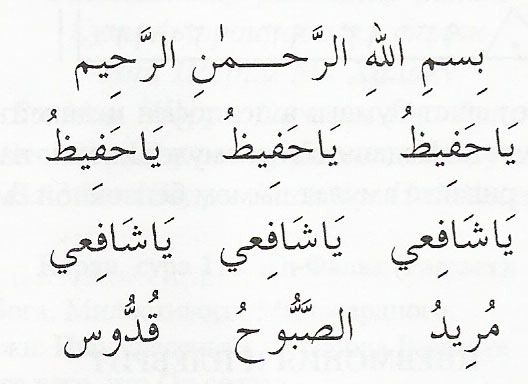 بِسمِ اللهِ الرَّحـــمٰنِ الرَّحِيم
يَاحَفِيظُ يَاحَفِيظُ يَاحَفِيظُ
يَاشَافعِي يَاشَافعِي يَاشَافعِي
مُرِيدُ الصَّبُّوحُ قُدُّوس